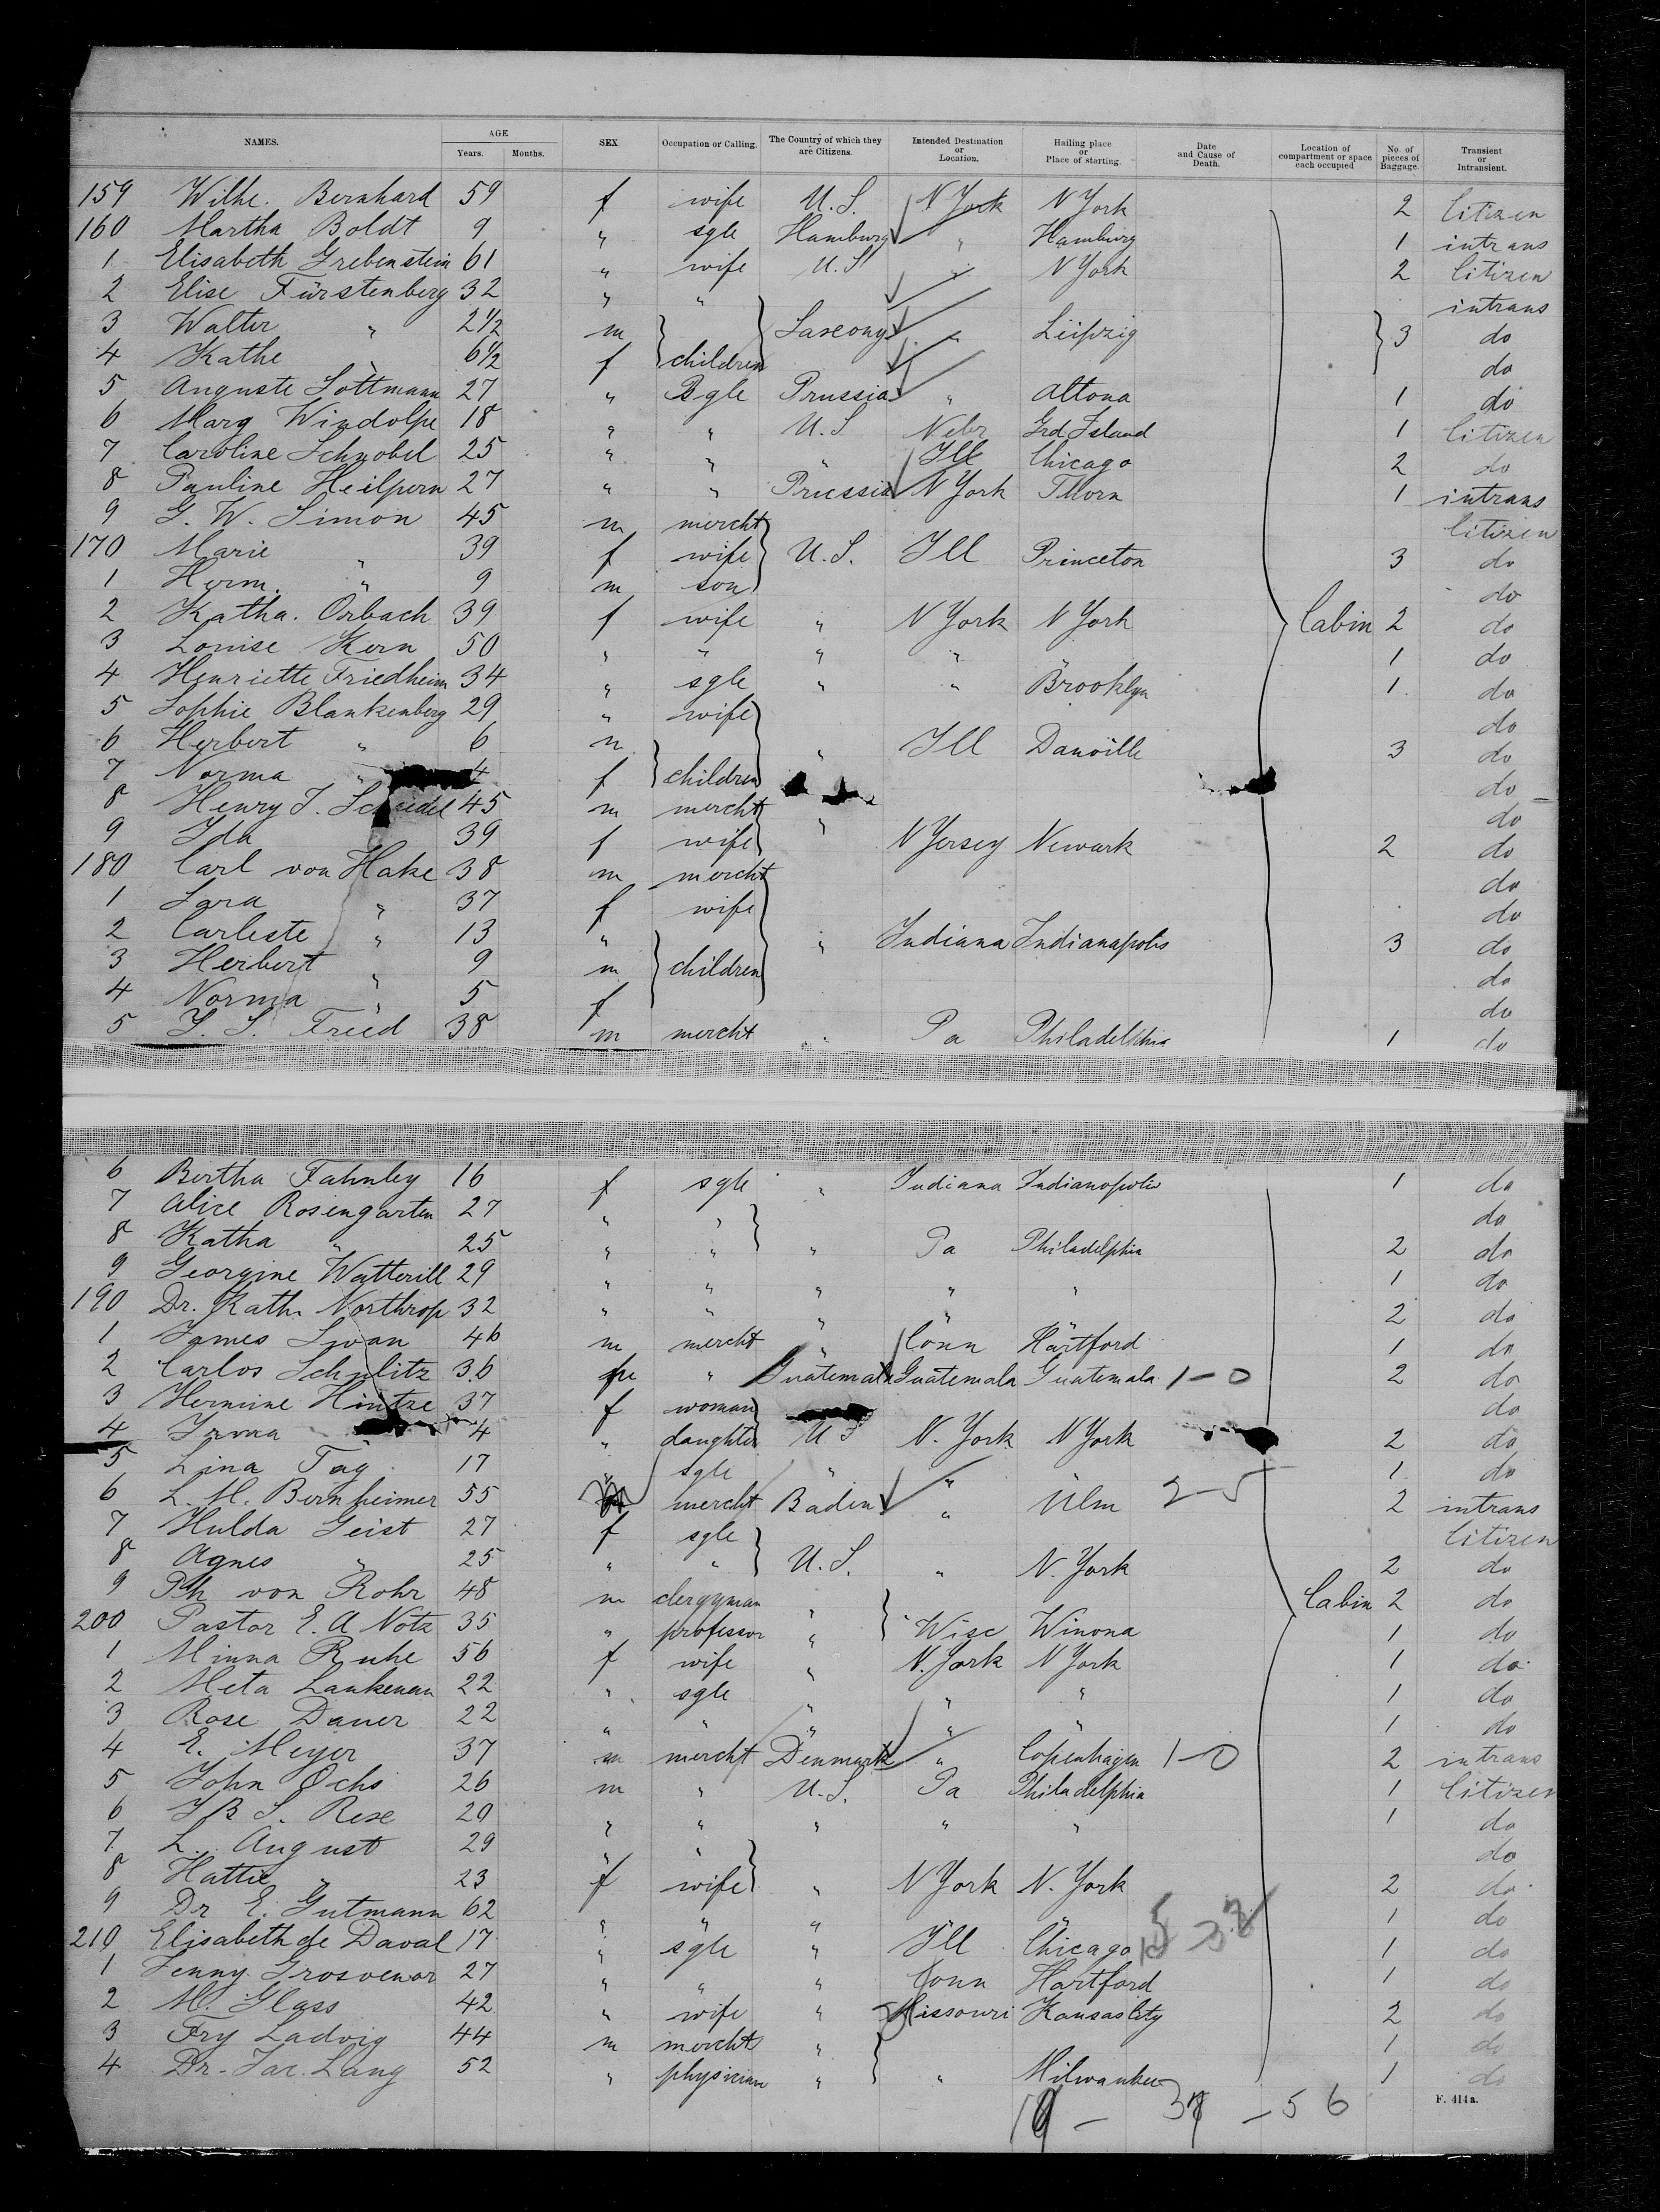 NAMES. AGE Years. Months. SEX Occupation or Calling. The Country of which they are Citizens. Intended Destination or Location. Hailing place or Place of starting. Date and Cause of Death. Location of compartment or space each occupied No. of pieces of Baggage. Transient or Intransient.
159 Wilhe. Bernhard 59 f wife U.S. N York N York 2 Citizen
160 Martha Boldt 9 " sgle Hamburg " Hamburg 1 intrans
1 Elisabeth Grebenstein 61 " wife U.S " N York 2 Citizen
2 Elise Fürstenberg 32 " " intrans
3 Walter " 2 1/2 m Saxony " Leipzig 3 do
4 Kathe " 6 1/2 f children do
5 Auguste Lottmann 27 " sgle Prussia " Altona 1 do
6 Marg Windolpe 18 " " U.S Nebr Grd Island 1 Citizen
7 Caroline Schnobel 25 " " " Ill Chicago 2 do
8 Pauline Heilpern 27 " " Prussia N York Thorn 1 intrans
9 G. W. Simon 45 m mercht Citizen
170 Marie " 39 f wife U.S. Ill Princeton 3 do
1 Herm. " 9 m son do
2 Katha. Orbach 39 f wife " N York N York Cabin 2 do
3 Louise Kern 50 " " " " " 1 do
4 Henriette Friedheim 34 " sgle " " Brooklyn 1 do
5 Sophie Blankenberg 29 " wife do
6 Herbert " 6 m " Ill Danville 3 do
7 Norma " 4 f children do
8 Henry J. 45 m mercht " do
9 Ida 39 f wife N Jersey Newark 2 do
180 Carl von Hake 38 m mercht do
1 Sara " 37 f wife do
2 Carleste " 13 " " Indiana Indianapolis 3 do
3 Herbert " 9 m children do
4 Norma " 5 f do
5 J. S. Fried 38 m mercht " Pa Philadelphia 1 do
6 Bertha Fahnley 16 f sgle " Indiana Indianopolis 1 do
7 Alice Rosengarten 27 " " do
8 Katha " 25 " " " Pa Philadelphia 2 do
9 Georgine Watterill 29 " " " " " 1 do
190 Dr. Kath. Northrop 32 " " " " " 2 do
1 James Swan 46 m mercht " Conn Hartford 1 do
2 Carlos Schulitz 36 m " Guatemala Guatemala Guatemala 1-0 2 do
3 Hermine Hintze 37 f woman do
4 Irma 4 " daughter U S N. York N York 2 do
5 Lina Tag 17 " sgle " " 1 do
6 L. M. Bernheimer 55 m mercht Baden " Ulm 2-5 2 intrans
7 Hulda Geist 27 f sgle Citizen
8 Agnes " 25 " " U.S. " N. York 2 do
9 Ph von Rohr 48 m clergyman " Cabin 2 do
200 Pastor E. A Notz 35 " professor " Wisc Winona 1 do
1 Minna Ruhe 56 f wife " N. York N York 1 do
2 Meta Lankenau 22 " sgle " " " 1 do
3 Rose Dauer 22 " " " " " 1 do
4 E. Meyer 37 m mercht Denmark " Copenhagen 1-0 2 intrans
5 John Ochs 26 m " U.S. Pa Philadelphia 1 Citizen
6 J B S. Rese 20 " " " " " 1 do
7 L. August 29 " " do
8 Hattie " 23 f wife " N York N. York 2 do
9 Dr E. Gutmann 62 " " " " 1 do
210 Elisabeth de Daval 17 " sgle " Ill Chicago 1 do
1 Jenny Grosvenor 27 " " " Conn Hartford 1 do
2 M. Glass 42 " wife " Missouri Kansas City 2 do
3 Fry Ladvig 44 m mercht " 1 do
4 Dr. Jac. Lang 52 " physician " " Milwaukee 1 do
19 - 37 - 56
F. 414a.